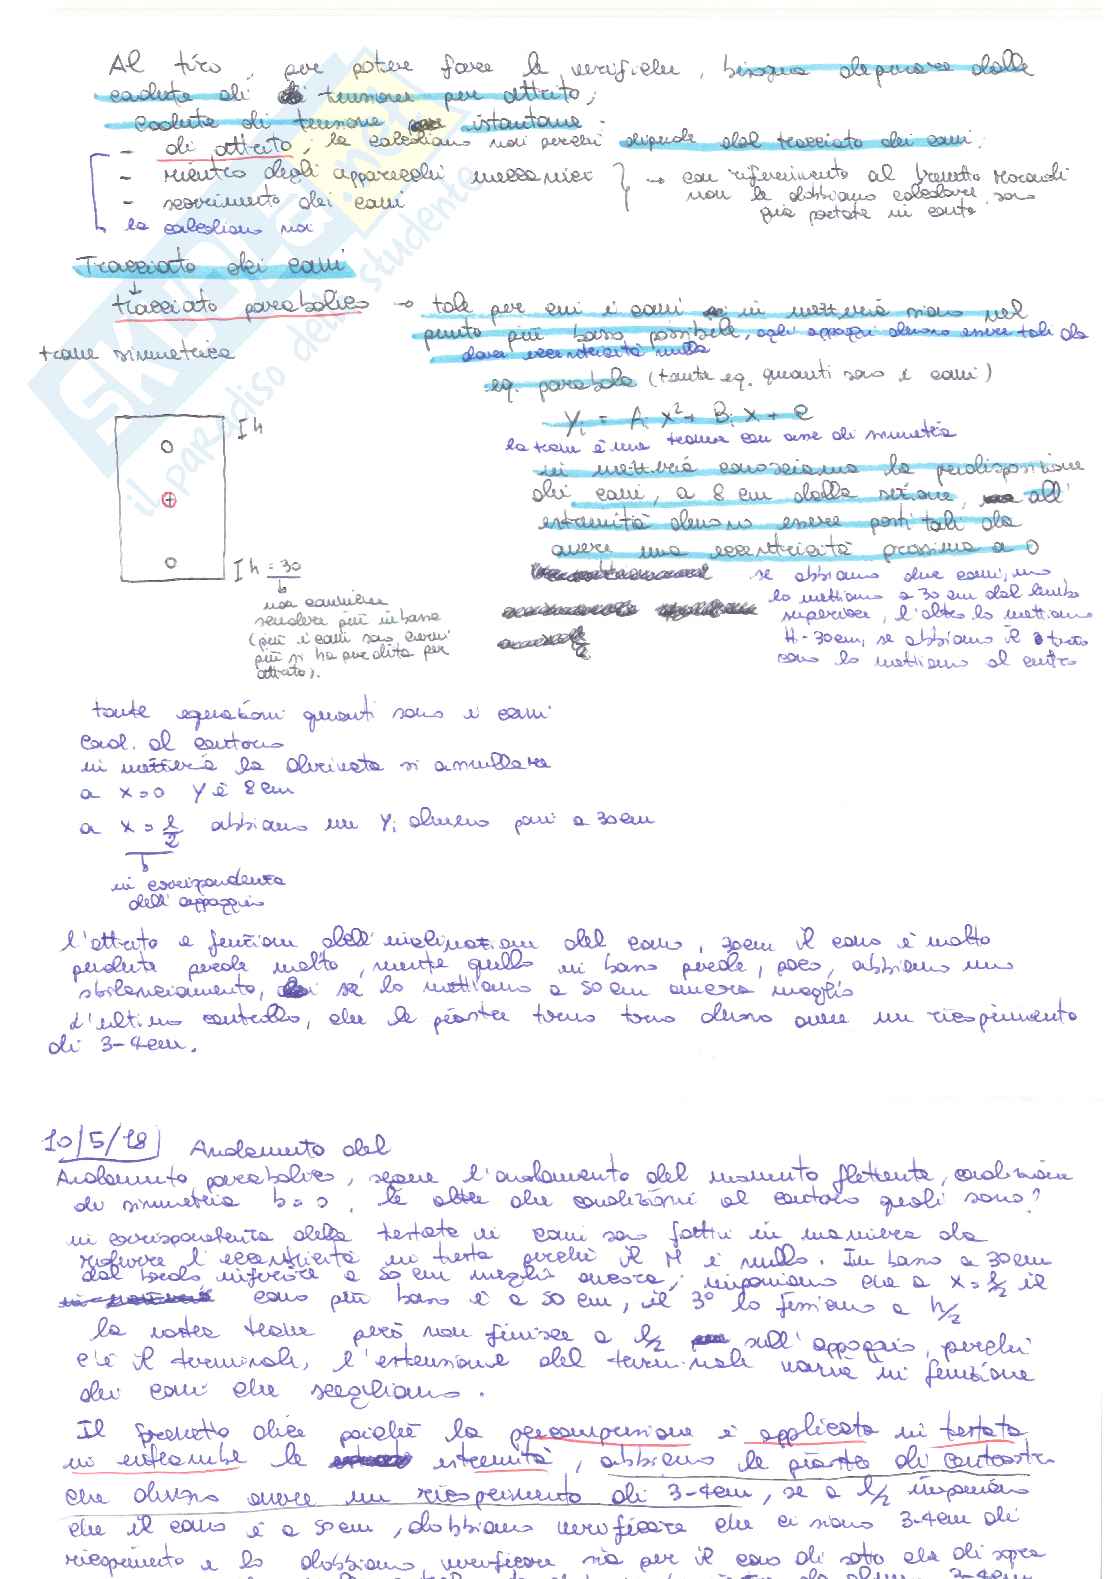 Al tiro, per potere fare le verifiche, bisogna depurare dalle
cadute di tensione per attrito;
Cadute di tensione istantanee:
- di attrito, le calcoliamo noi perché dipende dal tracciato dei cavi;
- rientro degli apparecchi meccanici
- scorrimento dei cavi
→ con riferimento al brevetto
non le dobbiamo calcolare sono
già portate in conto
le calcoliamo noi
Tracciato dei cavi
tracciato parabolico → tale per cui i cavi in mezzeria siano nel
punto più basso possibile, agli appoggi devono essere tali da
dare eccentricità nulla
trave simmetrica
eq. parabola (tante eq. quanti sono i cavi)
Yi = Ai x² + Bi x + C
la trave è una trave con asse di simmetria
in mezzeria conosciamo la predisposizione
dei cavi, a 8 cm dalla sezione, all'
estremità devono essere posti tali da
avere una eccentricità prossima a 0
I h
I h = 30
non conviene
scendere più in basso
(più i cavi sono curvi
più si ha perdita per
attrito).
se abbiamo due cavi, uno
lo mettiamo a 30 cm dal lembo
superiore, l'altro lo mettiamo
H-30cm, se abbiamo il terzo
cavo lo mettiamo al centro
tante equazioni quanti sono i cavi
Cond. al contorno
in mezzeria la derivata si annulla
a x=0 y è 8 cm
a x = l/2 abbiamo un Yi almeno pari a 30 cm
in corrispondenza
dell'appoggio
l'attrito è funzione dell'inclinazione del cavo, 30cm il cavo è molto
perde molto, mentre quello in basso perde poco, abbiamo uno
sbilanciamento, se lo mettiamo a 50 cm ancora meglio
L'ultimo controllo, che le piastre torno torno devono avere un ricoprimento
di 3-4cm.
10/5/18 Andamento del
Andamento parabolico, segue l'andamento del momento flettente, condizione
di simmetria b=0, le altre due condizioni al contorno quali sono?
in corrispondenza della testata i cavi sono fatti in maniera da
ridurre l'eccentricità in testa perché il M è nullo. In basso a 30cm
dal bordo inferiore a 50 cm meglio ancora; imponiamo che a x = l/2 il
cavo più basso è a 50 cm, il 3° lo fissiamo a h/2
la nostra trave però non finisce a l/2 sull'appoggio, perché
c'è il terminale, l'estensione del terminale varia in funzione
dei cavi che scegliamo.
Il brevetto dice poiché la precompressione è applicata in testata
in entrambe le estremità, abbiamo le piastre di contrasto
che devono avere un ricoprimento di 3-4cm, se a l/2 imponiamo
che il cavo è a 50cm, dobbiamo verificare che ci siano 3-4cm di
ricoprimento e lo dobbiamo verificare sia per il cavo di sotto che di sopra
3-4cm
il paradiso dello studente